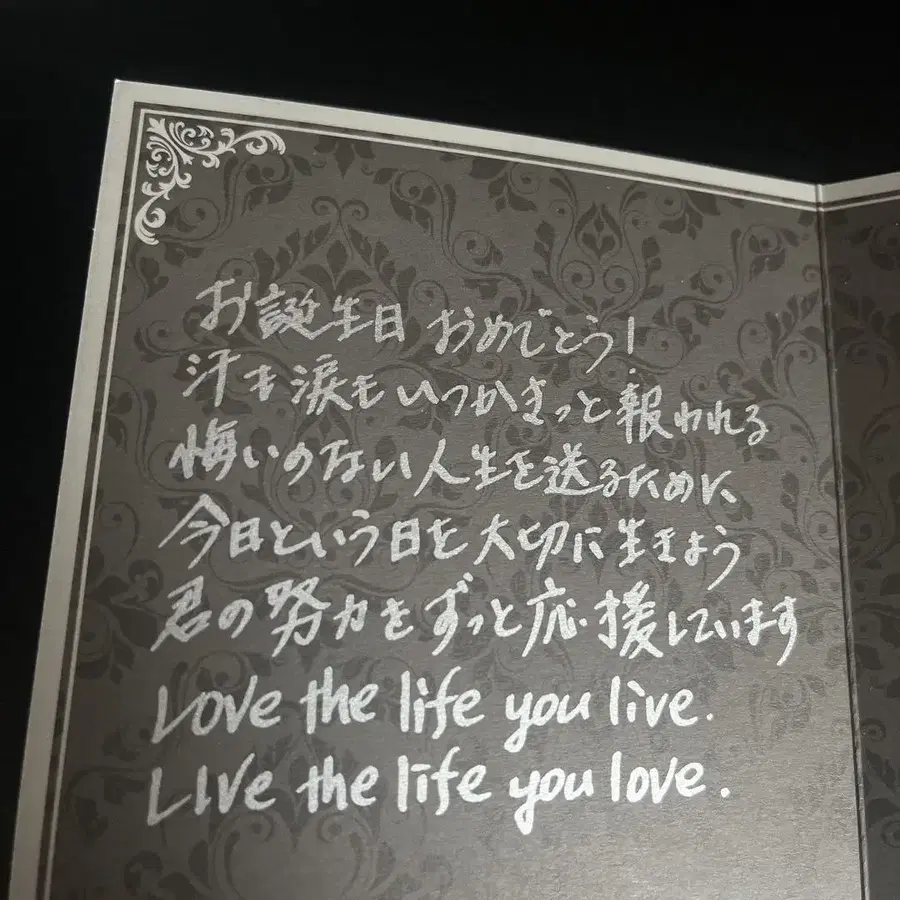 お誕生日 おめでとう!
汗も涙もいつかきっと報われる
悔いのない人生を送るために
今日という日を大切に生きよう
君の努力をずっと応援しています
Love the life you live.
Live the life you love.